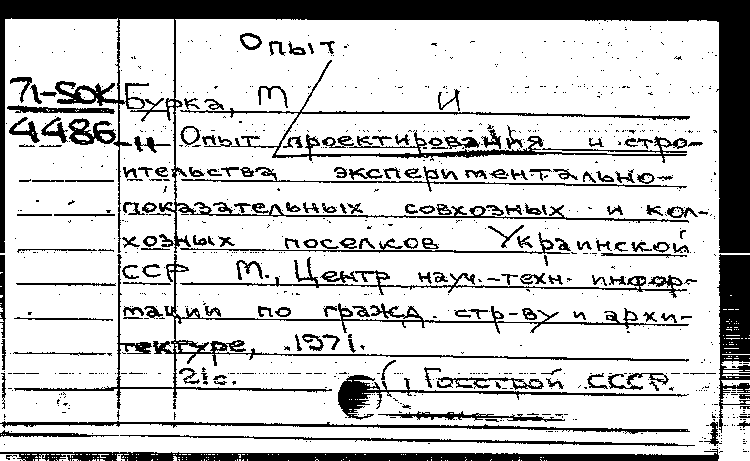 Опыт.
71-SOK Бурка, М И
4486 -11 Опыт проектирования и стро-
ительства экспериментально-
показательных совхозных и кол-
хозных поселков Украинской
ССР М., Центр науч.-техн. инфор-
мации по гражд. стр-ву и архи-
тектуре, 1971.
21с. (Госстрой СССР.